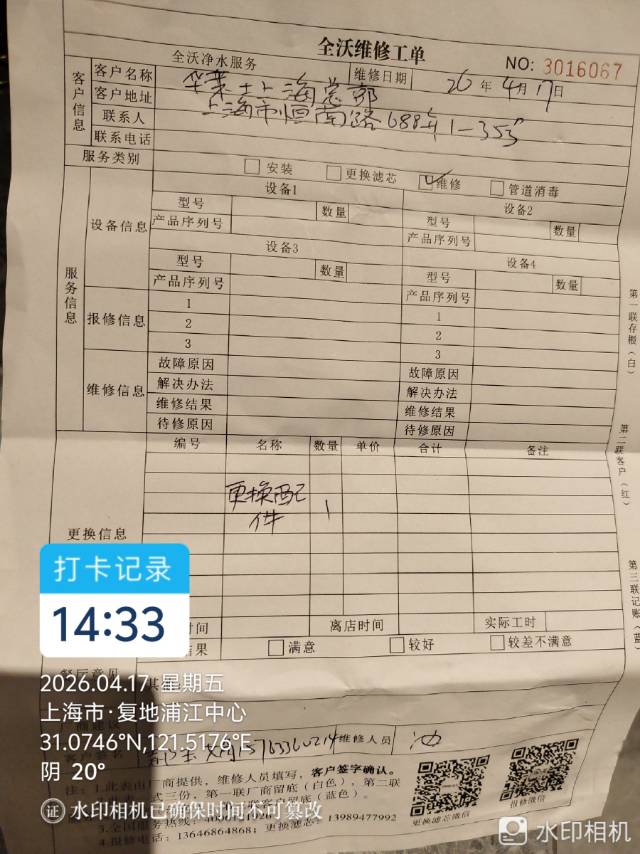 全沃维修工单
全沃净水服务
NO: 3016067
客户信息
客户名称
维修日期 26年4月17日
客户地址 上海市恒南路688弄1-35号
联系人
联系电话
服务类别 安装 更换滤芯 维修 管道消毒
服务信息
设备信息
设备1 设备2
型号 数量 型号 数量
产品序列号 产品序列号
设备3 设备4
型号 数量 型号 数量
产品序列号 产品序列号
报修信息
1 1
2 2
3 3
维修信息
故障原因 故障原因
解决办法 解决办法
维修结果 维修结果
待修原因 待修原因
更换信息
编号 名称 数量 单价 合计 备注
更换配件 1
时间 离店时间 实际工时
结果 满意 较好 较差不满意
第一联存根(白)
第二联客户(红)
第三联记账(蓝)
打卡记录
14:33
2026.04.17 星期五
上海市·复地浦江中心
31.0746°N,121.5176°E
阴 20°
维修人员
注:1.此表由厂商提供,维修人员填写,客户签字确认。
式三份,第一联厂商留底(白色),第二联
客户留底(蓝色)。
3.全国服务热线:
4.报修电话:13646864868; 更换滤芯:13989477992
更换滤芯微信
报修微信
证 水印相机已确保时间不可篡改
水印相机